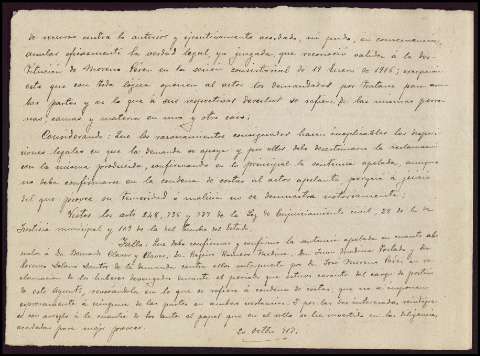 de recurso contra lo anterior y ejecutivamente acordado, no pudo, en consecuencia,
anular eficazmente la verdad legal, ya juzgada, que reconoció validez á la des-
titución de Moreno Pérez en la sesión consistorial de 19 Enero de 1916; excepción
esta que con toda lógica oponen al actor los demandados por tratarse para am-
bas partes y en lo que á sus respectivos derechos se refiere de las mismas perso-
nas, causas y materia en uno y otro caso;
Considerando: Que los razonamientos consignados hacen inaplicables las dispo-
siciones legales en que la demanda se apoya y por ello debe desestimarse la reclamación
con la misma producida, confirmando en lo principal la sentencia apelada, aunque
no deba confirmarse en la condena de costas al actor apelante porque á juicio
del que provee su temeridad ó malicia no se demuestra notoriamente;
Vistos los arts 248, 736 y 737 de la Ley de Enjuiciamiento civil, 28 de la de
Justicia municipal y 103 de la del Timbre del Estado.
Fallo: Que debo confirmar y confirmo la sentencia apelada en cuanto ab-
suelve á Dn. Bernardo y Dn. Juan
Lorenzo de la demanda contra ellos interpuesta por Dn. José Moreno Pérez en re-
clamación de los haberes devengados durante el período que estuvo cesante del cargo de portero
de este, revocándola en lo que se refiere á condena de costas, que no se imponen
expresamente á ninguna de las partes en ambas instancias. Y por los interesados, reintégre-
se con arreglo á la cuantía de los autos el papel que en el sello se ha invertido en las diligencias
acordadas para mejor proveer.
20 Octbre 917.